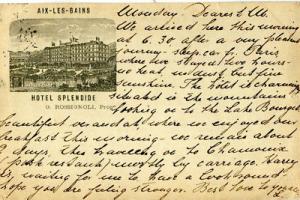 AIX-LES-BAINS
HOTEL SPLENDIDE
G. ROSSIGNOLI, Prop.
Monday. Dearest M.
We arrived here this morning
at 6.30 after a pleasant
journey - sleep. car fr. Paris
where we stayed two hours -
no heat, no dust but fine
sunshine. The hotel is charming
situated in the mountains
looking on to the Lake Bourget
beautiful verandah where we enjoyed our
breakfast this morning - we remain about
9 days, then traveling on to Chamonix
mostly by carriage. Harry
is waiting for me to have a look round
hope you are feeling stronger. Best love to you